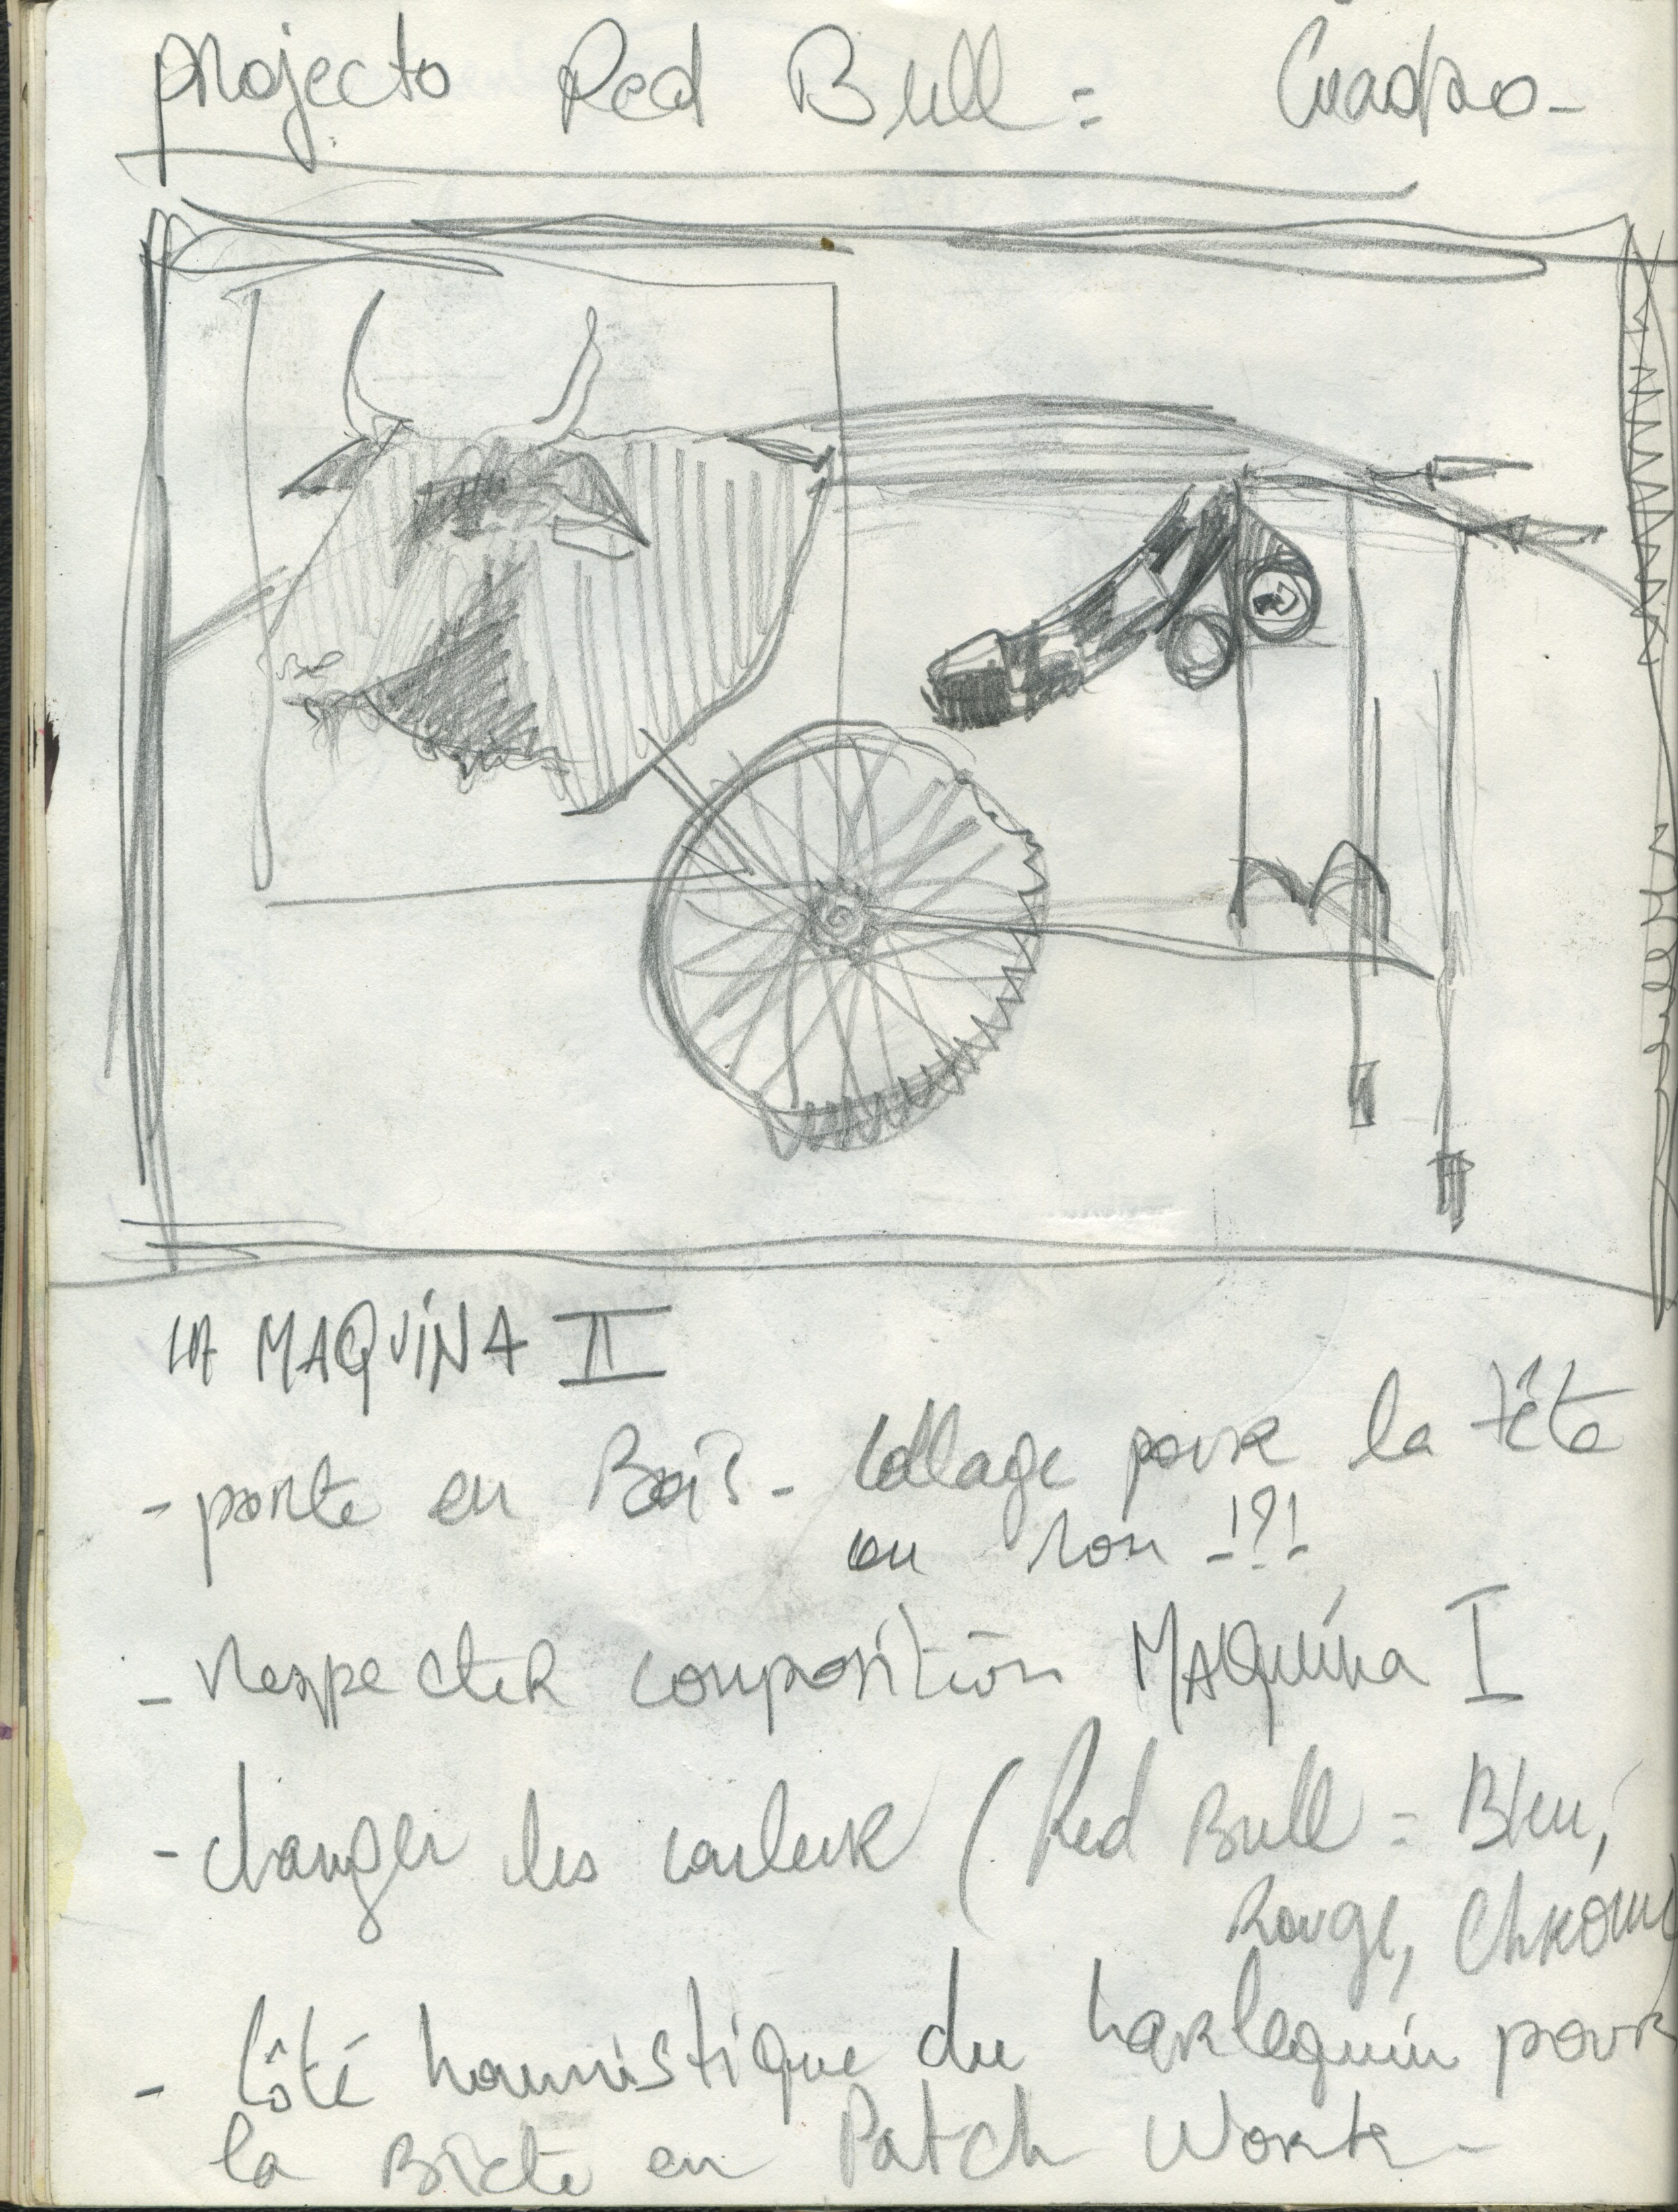 projecto Red Bull = Cuadro -
LA MAQUINA II
- porte en Bois - Collage pour la tête
ou non !?!
- respecter composition MAQuina I
- changer les couleur (Red Bull = Bleu,
Rouge, Chrome
- Côté houmistique du harlequin pour
la Bicte en Patch Work -